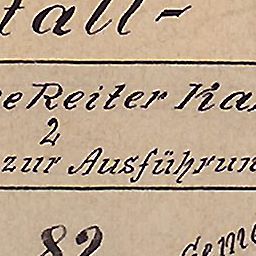 tall-
Reiter Ka
2
zur Ausführun
82
geme